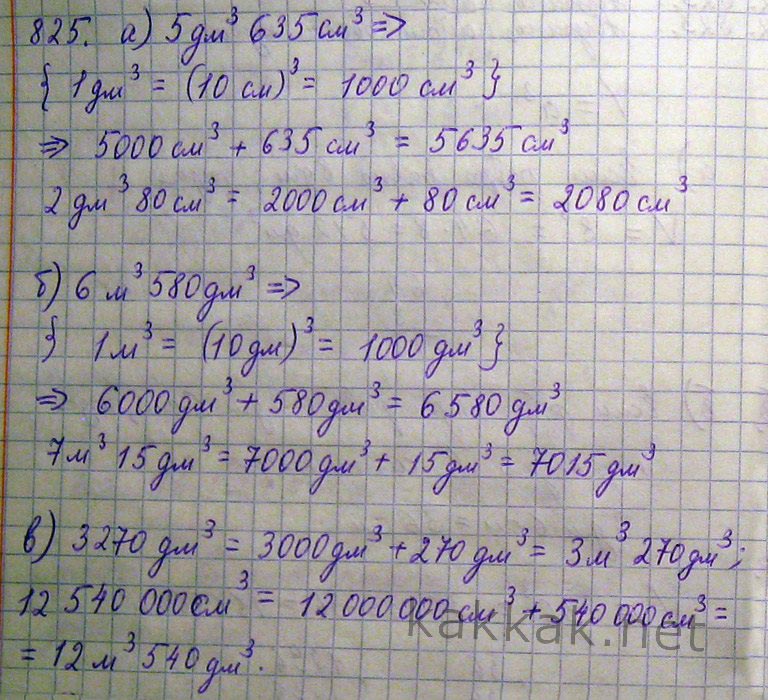 825. а) 5дм³ 635см³ =>
{ 1дм³ = (10 см)³ = 1000 см³ }
=> 5000 см³ + 635 см³ = 5635 см³
2 дм³ 80 см³ = 2000 см³ + 80 см³ = 2080 см³
б) 6 м³ 580 дм³ =>
{ 1м³ = (10 дм)³ = 1000 дм³ }
=> 6000 дм³ + 580 дм³ = 6580 дм³
7м³ 15 дм³ = 7000 дм³ + 15 дм³ = 7015 дм³
в) 3270 дм³ = 3000 дм³ + 270 дм³ = 3м³ 270 дм³;
12 540 000 см³ = 12 000 000 см³ + 540 000 см³ =
= 12 м³ 540 дм³.
kakkak.net